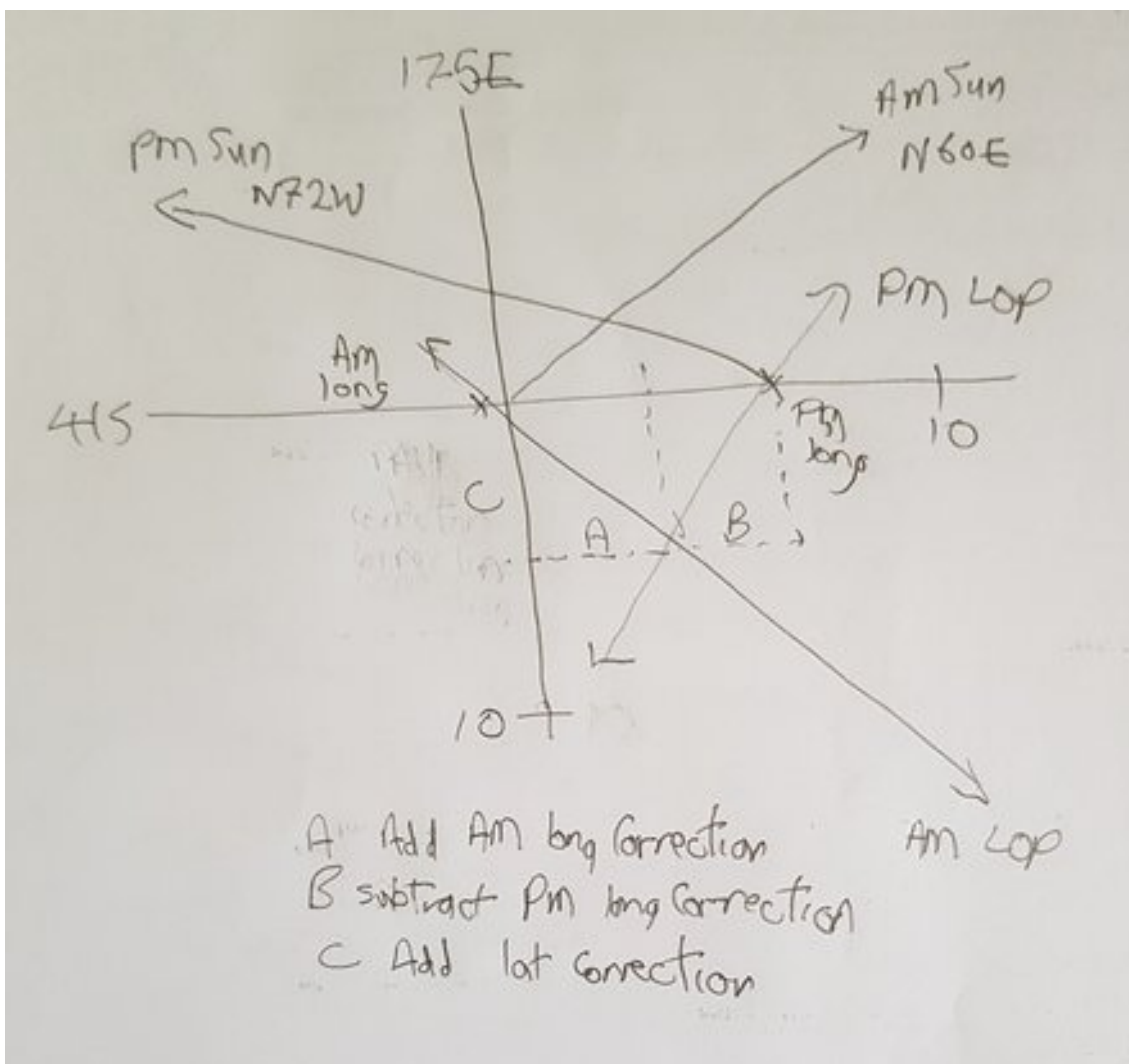 175E
Am Sun
N60E
Pm Sun
N72W
Pm LOP
Am
long
41S
Pm
long
10
C
A
B
10
Am LOP
A Add AM long Correction
B subtract Pm long Correction
C Add lat Correction